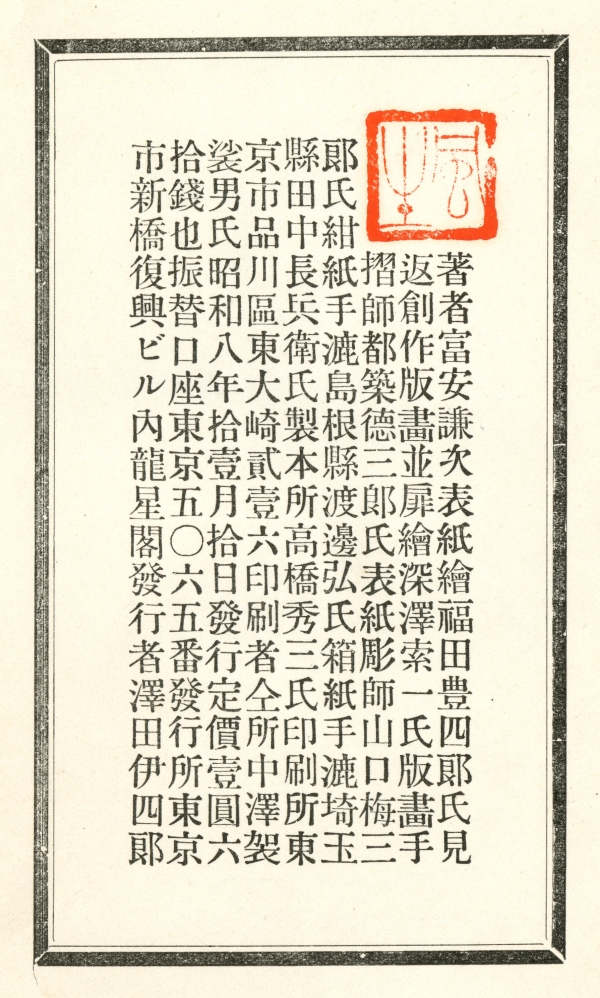 風生
著者富安謙次表紙繪福田豊四郎氏見
返創作版畫並扉繪深澤索一氏版畫手
摺師都築德三郎氏表紙彫師山口梅三
郎氏紺紙手漉島根縣渡邊弘氏箱紙手漉埼玉
縣田中長兵衛氏製本所高橋秀三氏印刷所東
京市品川區東大崎貳壹六印刷者仝所中澤袈
裟男氏昭和八年拾壹月拾日發行定價壹圓六
拾錢也振替口座東京五〇六五番發行所東京
市新橋復興ビル內龍星閣發行者澤田伊四郎